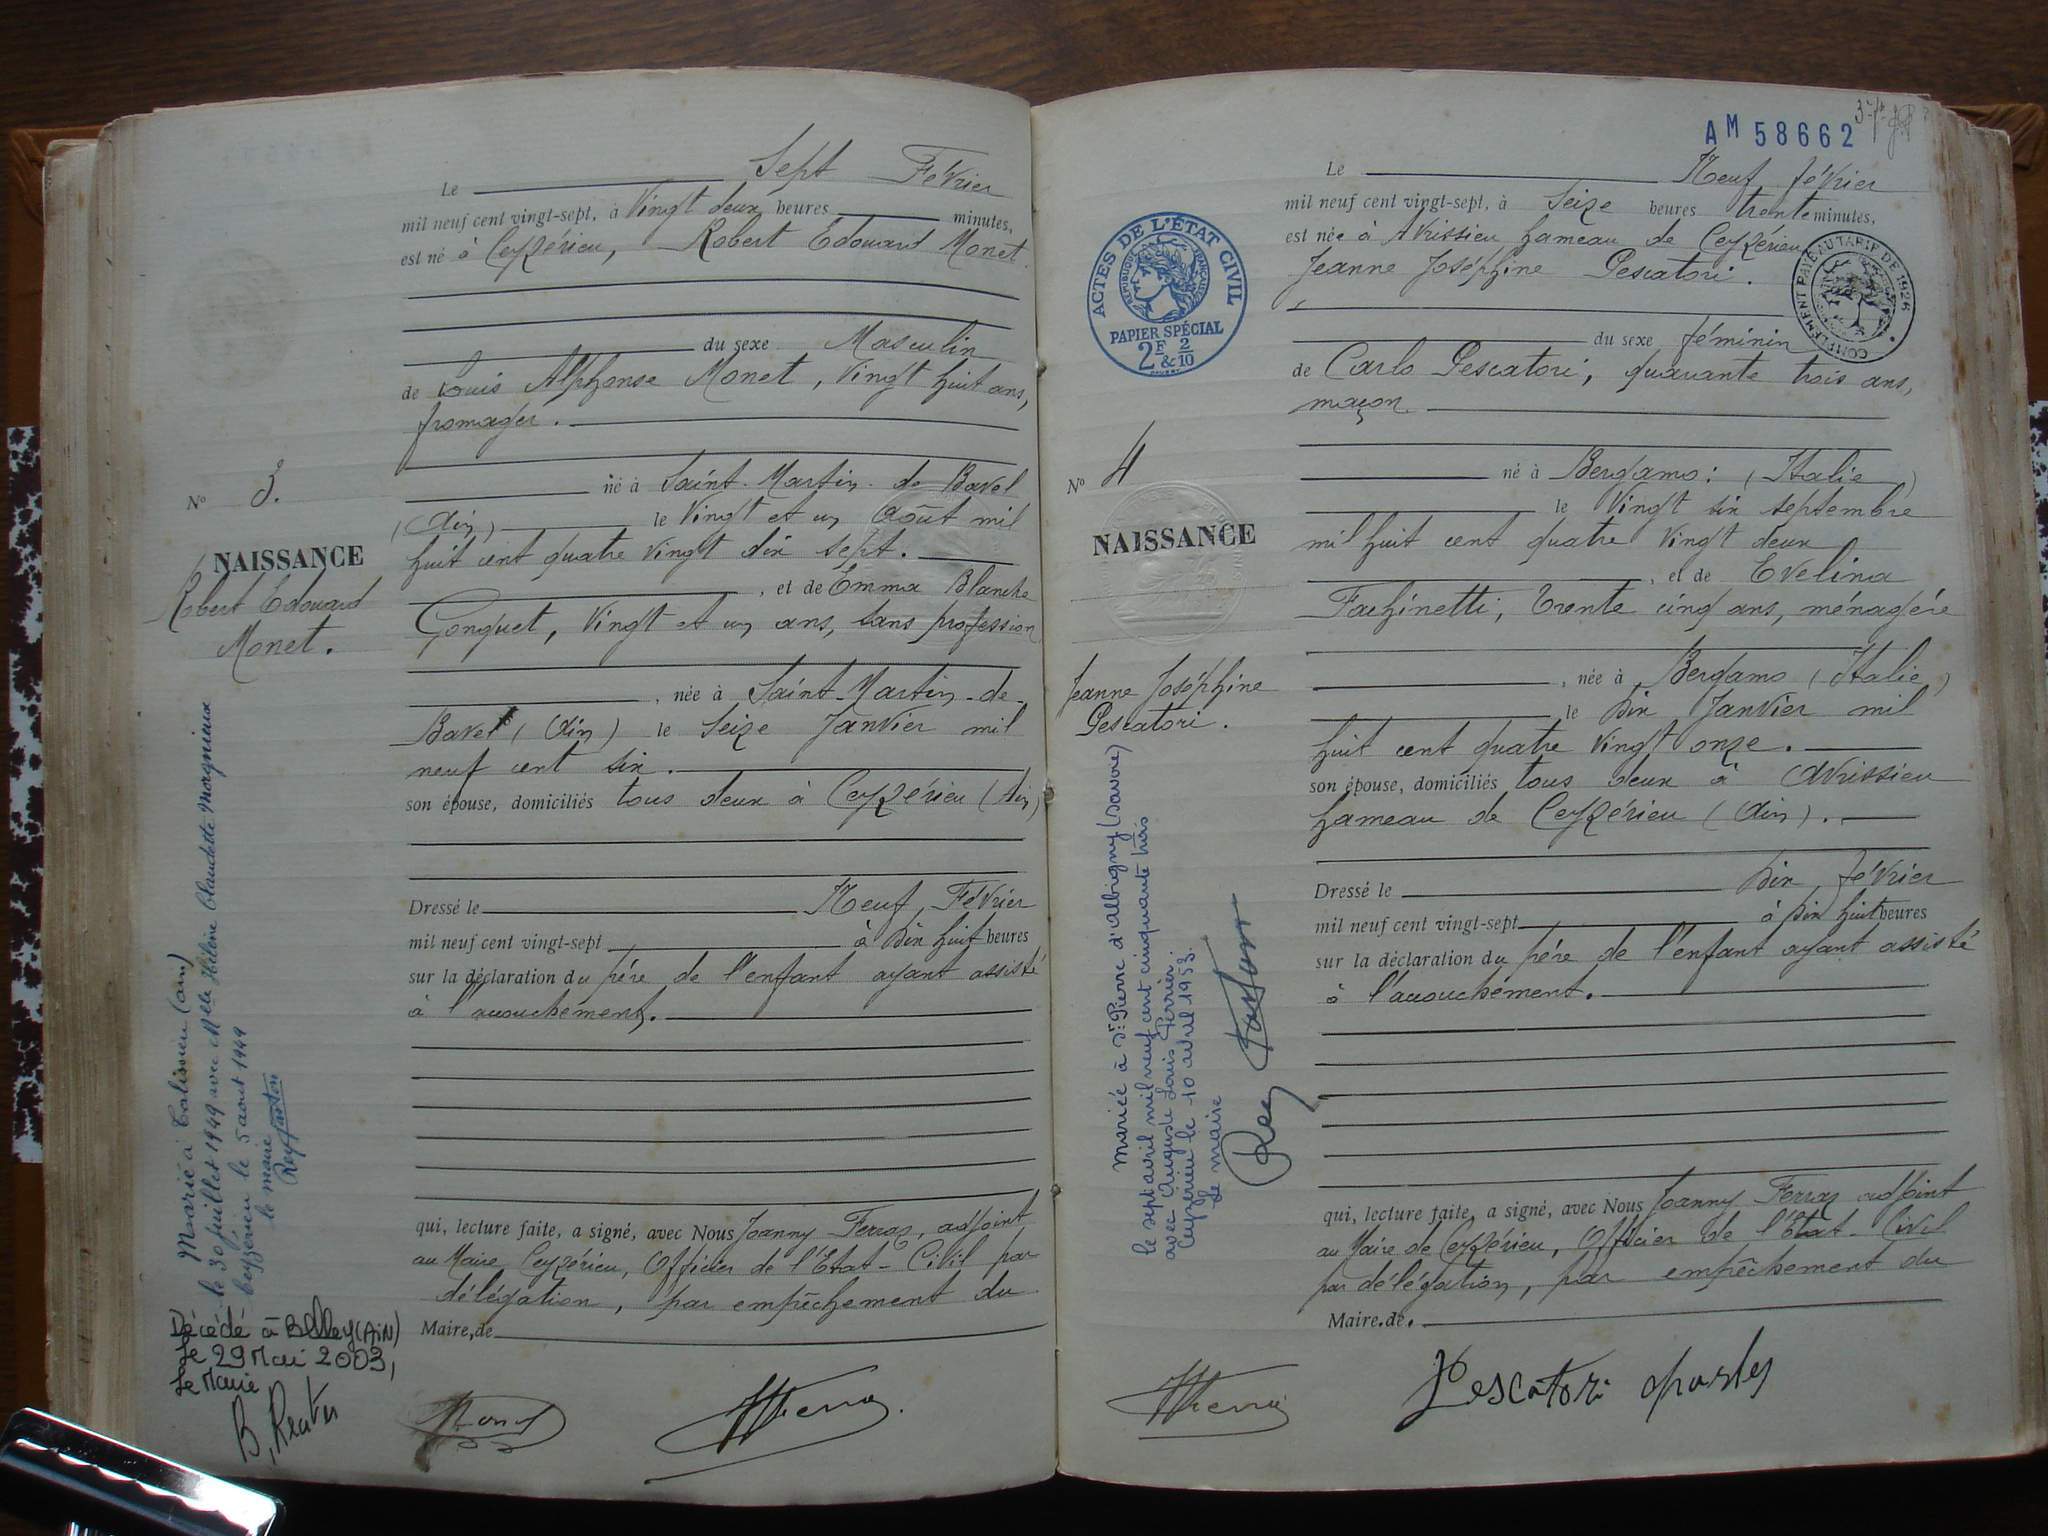 Le Sept Février
mil neuf cent vingt-sept, à Vingt deux heures minutes,
est né à Ceyzérieu, Robert Edouard Monet.
du sexe Masculin
de Louis Alphonse Monet, Vingt huit ans,
fromager.
né à Saint-Martin-de Bavel
(Ain) le Vingt et un Août mil
huit cent quatre Vingt dix sept.
, et de Emma Blanche
Gonguet, Vingt et un ans, sans profession
, née à Saint-Martin-de-
Bavel (Ain) le Seize Janvier mil
neuf cent six.
son épouse, domiciliés tous deux à Ceyzérieu (Ain)
Dressé le Neuf Février
mil neuf cent vingt-sept à Dix huit heures
sur la déclaration du père de l'enfant ayant assisté
à l'accouchement.
qui, lecture faite, a signé, avec Nous Joanny Ferraz, adjoint
au Maire Ceyzérieu, Officier de l'Etat-Civil par
délégation, par empêchement du
Maire, de
No 3.
NAISSANCE
Robert Edouard
Monet.
Marié à Talissieu (ain)
le 30 juillet 1949 avec Melle Hélène Claudette Morgnieux
Ceyzérieu le 5 aout 1949
le maire
Décédé à Belley (AiN)
Le 29 Mai 2003,
Le Maire
Monet
AM 58662
ACTES DE L'ÉTAT CIVIL
RÉPUBLIQUE FRANÇAISE
PAPIER SPÉCIAL
2F & 2/10
COMPLÉMENT PAYÉ AU TARIF DE 1926
Le Neuf février
mil neuf cent vingt-sept, à Seize heures trente minutes,
est née à Avrissieu hameau de Ceyzérieu
Jeanne Joséphine Pescatori.
du sexe féminin
de Carlo Pescatori, quarante trois ans,
maçon
né à Bergamo: (Italie)
le Vingt six septembre
mil huit cent quatre Vingt deux
, et de Evelina
Fachinetti, Trente cinq ans, ménagère
, née à Bergamo (Italie)
le Dix Janvier mil
huit cent quatre Vingt onze.
son épouse, domiciliés tous deux à Avrissieu
hameau de Ceyzérieu (Ain).
Dressé le Dix février
mil neuf cent vingt-sept à Dix huit heures
sur la déclaration du père de l'enfant ayant assisté
à l'accouchement.
qui, lecture faite, a signé, avec Nous Joanny Ferraz adjoint
au Maire de Ceyzérieu, Officier de l'Etat-Civil
par délégation, par empêchement du
Maire. de.
No 4
NAISSANCE
Jeanne Joséphine
Pescatori.
Mariée à St Pierre d'Albigny (Savoie)
le sept avril mil neuf cent cinquante trois
avec Auguste Louis Perrier.
Ceyzerieu le 10 avril 1953.
Le maire
Pescatori Charles